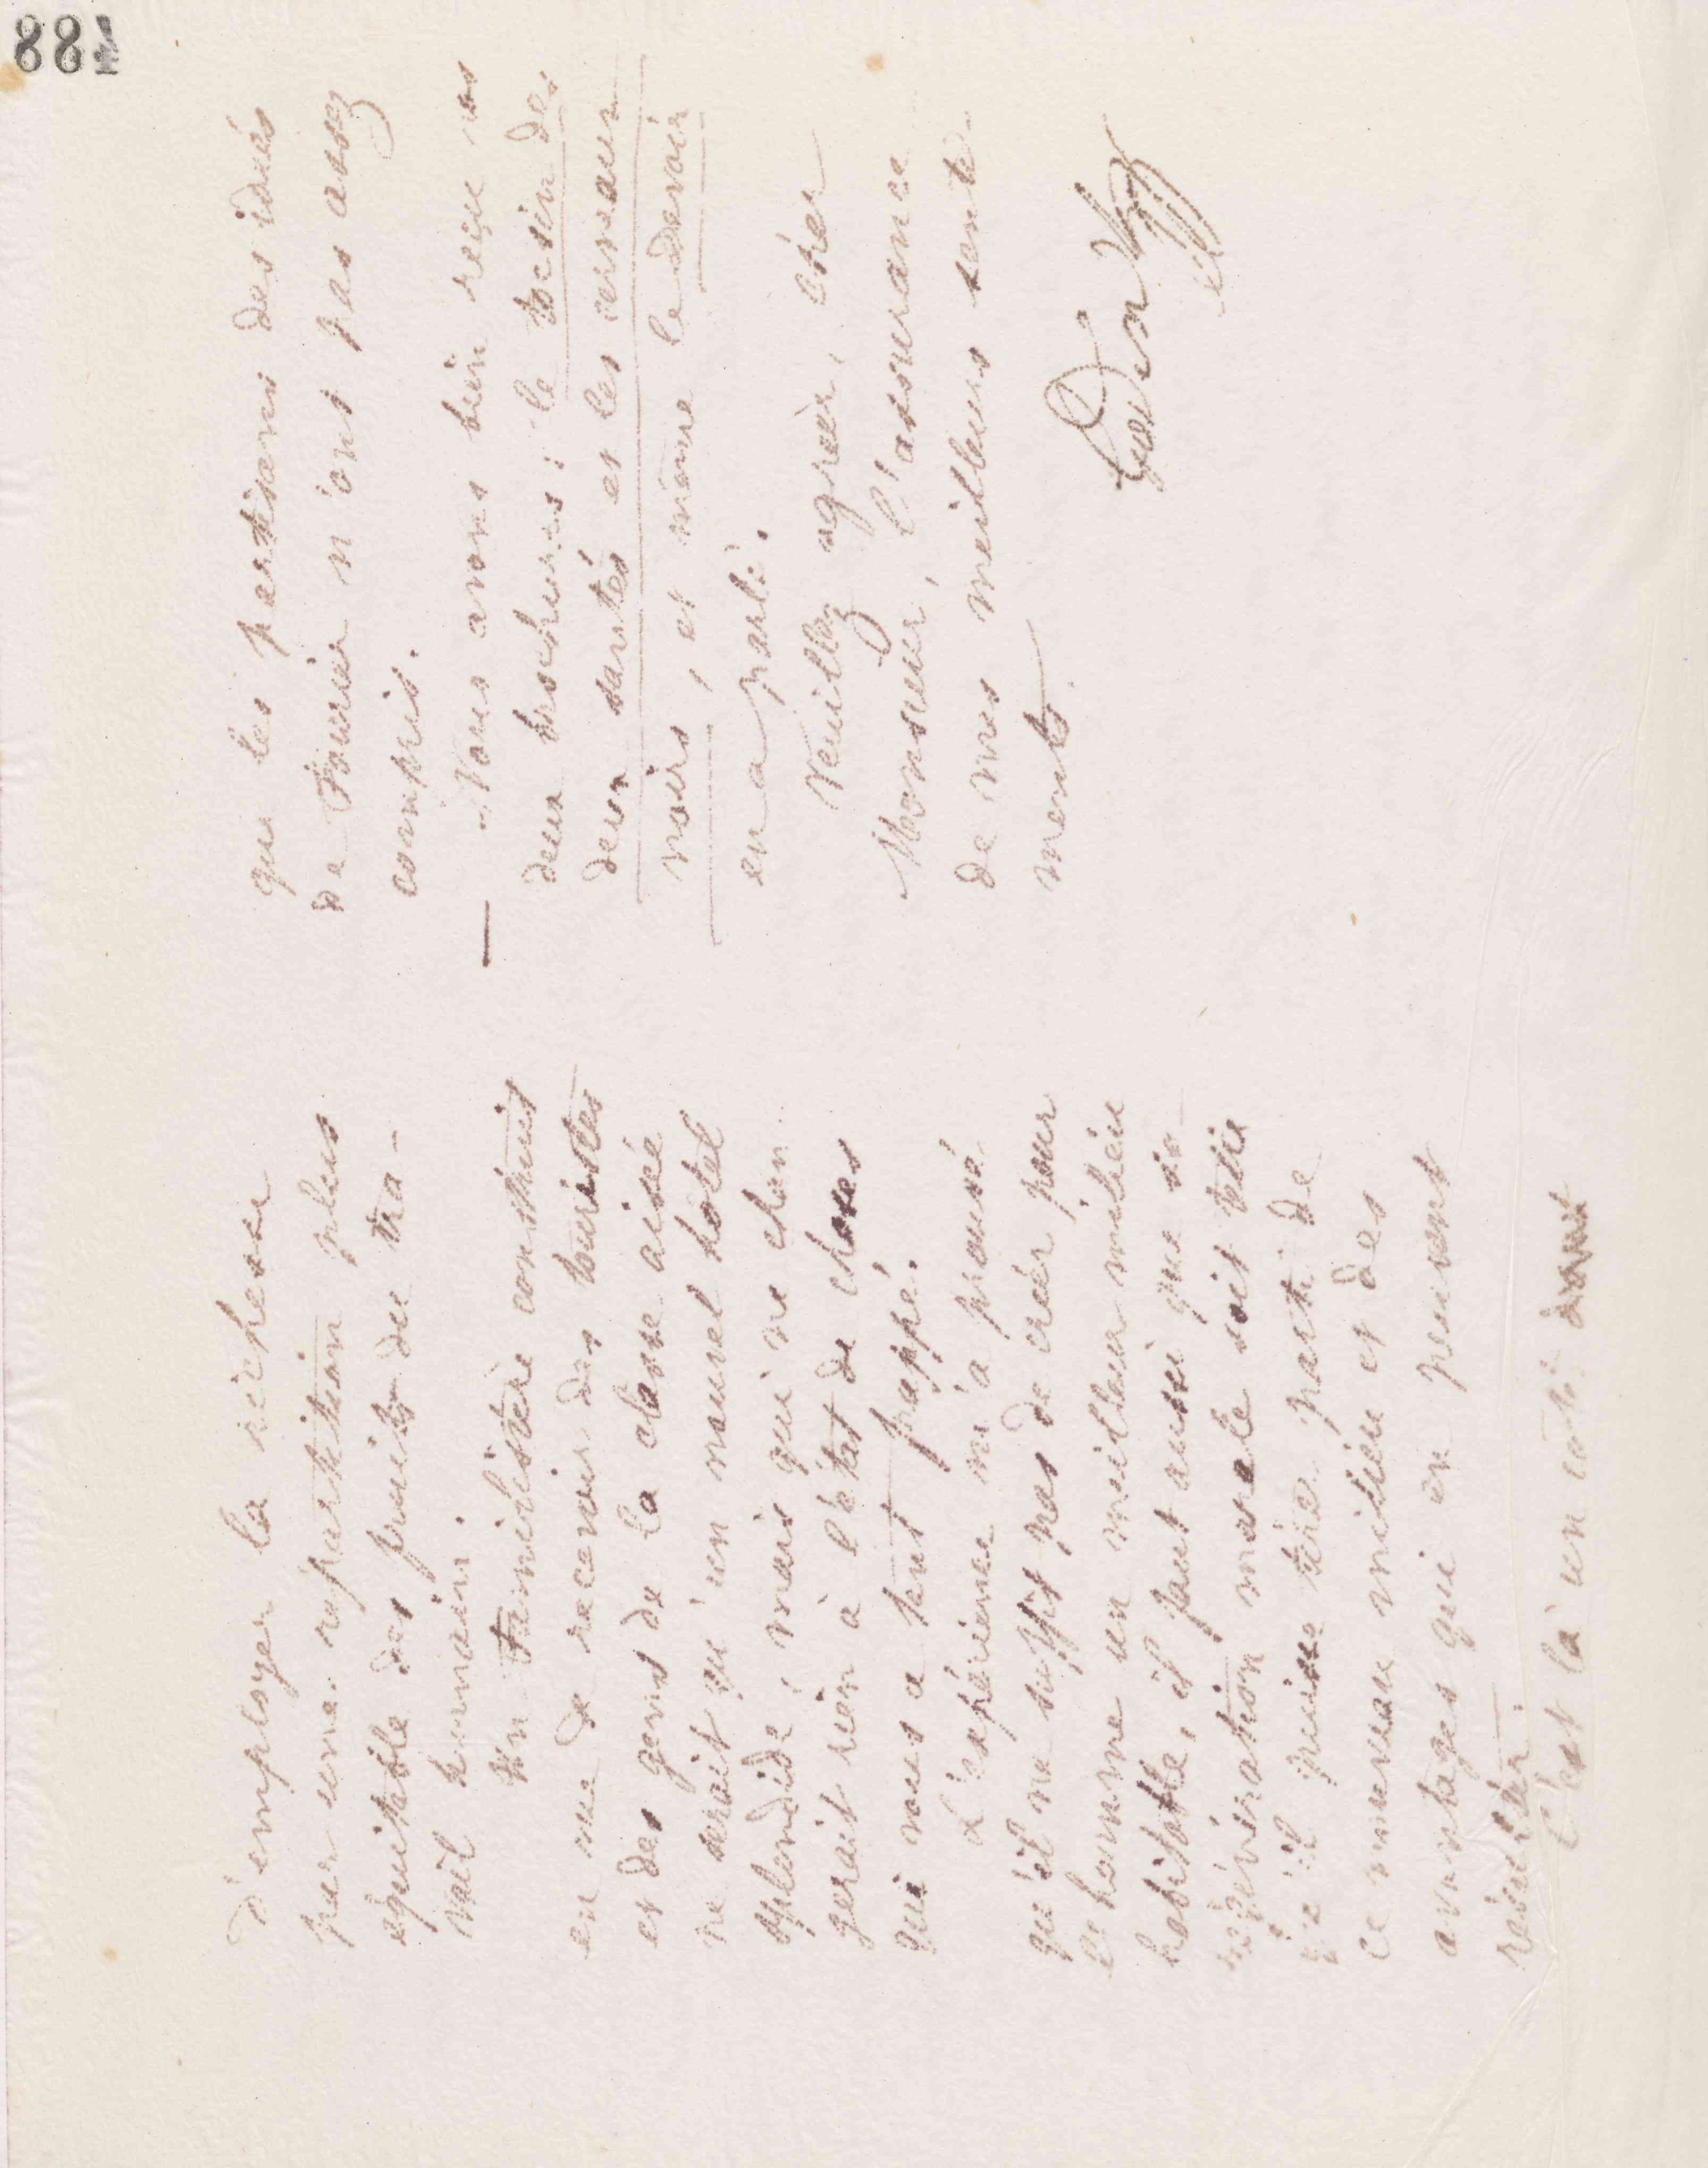 881
d'employer la richesse
par une répartition plus
equitable des fruits du tra-
vail humain.
Un Familistère construit
en vue de recevoir des touristes
et des gens de la classe aisée
ne serait qu'un nouvel hôtel
splendide, mais qui ne chan
gerait rien à l'état de choses
qui vous a tant frappé.
L'expérience m'a prouvé
qu'il ne suffit pas de créer pour
l'homme un meilleur milieu
habitable, il faut aussi que sa
régénération morale soit telle
qu'il puisse tirer parti de
ce nouveau milieu et des
avantages qui en peuvent
résulter.
C'est là un côté dont
que les partisans des idées
de Fourier n'ont pas assez
compris.
— Nous avons bien reçu vos
deux brochures : le tocsin des
deux santés et les cerveaux
noirs, et même le devoir
en a parlé.
Veuillez agréer, cher
Monsieur, l'assurance
de mes meilleurs senti-
ments.
Godin